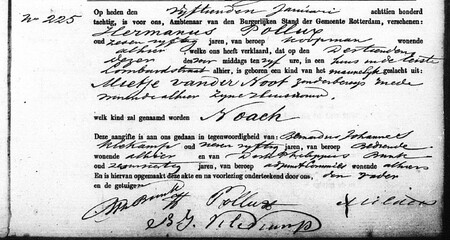 No 225
Op heden den vijftienden Januari achttien honderd
tachtig, is voor ons, Ambtenaar van den Burgerlijken Stand der Gemeente Rotterdam, verschenen:
Hermanus Pollux
oud zeven vijftig jaren, van beroep koopman wonende
alhier welke ons heeft verklaard, dat op den dertienden
dezer des middags ten vijf ure, in een huis in de eerste
Lombardstraat alhier, is geboren een kind van het mannelijk geslacht uit:
Mietje van der Noot zonder beroep mede
wonende alhier zijne huisvrouw
welk kind zal genaamd worden Noach
Deze aangifte is aan ons gedaan in tegenwoordigheid van: Bernardus Johannes
Veldkamp oud vijftig jaren, van beroep Bediende
wonende alhier en van Dirk Philippus Bunk
oud jaren, van beroep wonende alhier
En is hiervan opgemaakt deze akte en na voorlezing onderteekend door ons, den vader
en de getuigen
Bunk Pollux
B J Veldkamp